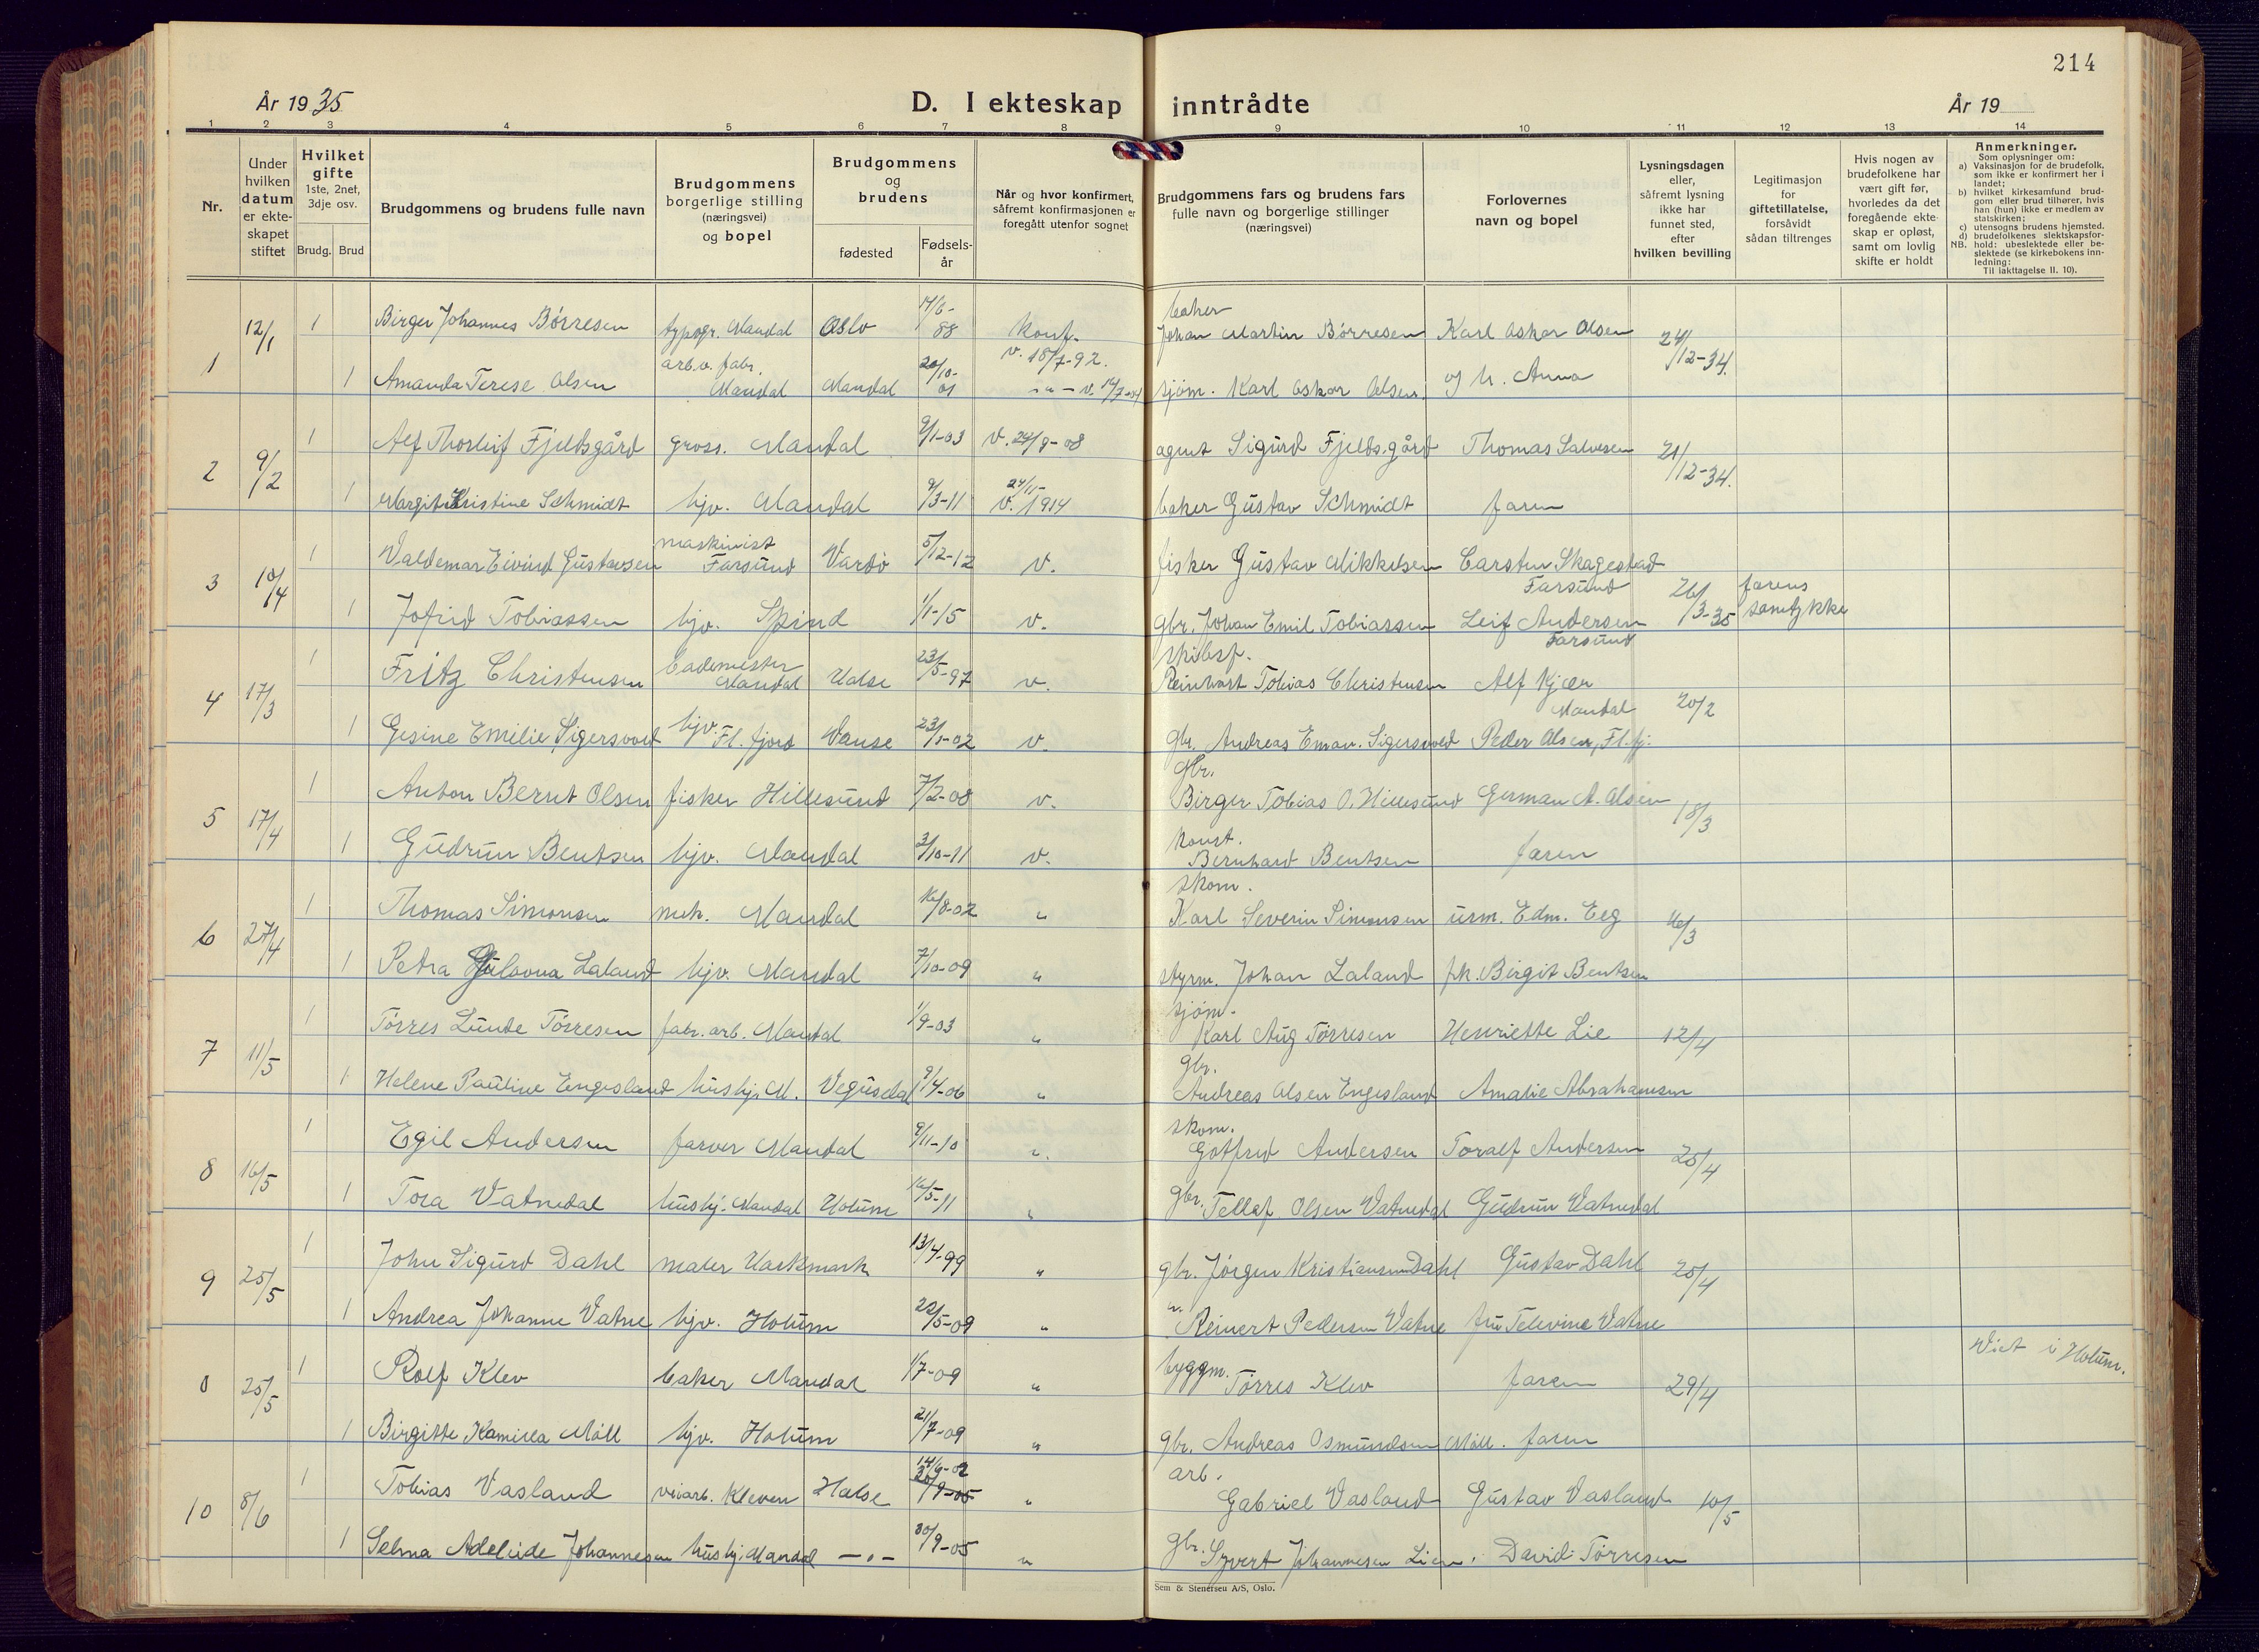 214
År 1935
D. I ekteskap inntrådte
År 19
1 2 3 4 5 6 7 8 9 10 11 12 13 14
Nr.
Under hvilken datum er ekteskapet stiftet
Hvilket gifte 1ste, 2net, 3dje osv.
Brudg. Brud
Brudgommens og brudens fulle navn
Brudgommens borgerlige stilling (næringsvei) og bopel
Brudgommens og brudens
fødested
Fødselsår
Når og hvor konfirmert, såfremt konfirmasjonen er foregått utenfor sognet
Brudgommens fars og brudens fars fulle navn og borgerlige stillinger (næringsvei)
Forlovernes navn og bopel
Lysningsdagen eller, såfremt lysning ikke har funnet sted, efter hvilken bevilling
Legitimasjon for giftetillatelse, forsåvidt sådan tiltrenges
Hvis nogen av brudefolkene har vært gift før, hvorledes da det foregående ekteskap er opløst, samt om lovlig skifte er holdt
Anmerkninger.
Som oplysninger om:
a) Vaksinasjon for de brudefolk, som ikke er konfirmert her i landet;
b) hvilket kirkesamfund brudgom eller brud tilhører, hvis han (hun) ikke er medlem av statskirken;
c) utensogns brudens hjemsted.
d) brudefolkenes slektskapsforhold: ubeslektede eller beslektede (se kirkebokens innledning:
NB. Til iakttagelse II. 10).
1 12/1 1 Birger Johannes Børresen typogr. Mandal Oslo 14/6-88 Konf. v. 18/7-92. baker Johan Martin Børresen Karl Oskar Olsen 24/12-34.
1 Amanda Terese Olsen arb.v. fabr. Mandal Mandal 20/10-01 -"- v. 14/7-04 sjøm. Karl Oskar Olsen og h. Anna
2 9/2 1 Alf Thorleif Fjeldsgård gross. Mandal 9/1-03 v. 24/9-08 agent Sigurd Fjeldsgård Thomas Salvesen 21/12-34.
1 Margit Kristine Schmidt hjv. Mandal 9/3-11 v. 24/11-1914 baker Gustav Schmidt faren
3 10/4 1 Valdemar Eivind Gustavsen maskinist Farsund Vardø 5/12-12 v. fisker Gustav Mikkelsen Carsten Skagestad Farsund 26/3-35 farens samtykke
1 Jofrid Tobiassen hjv. Spind 1/1-15 v. gbr. Johan Emil Tobiassen Leif Andersen Farsund
4 17/3 1 Fritz Christensen bademester Mandal Halse 23/5-97 v. skibsf. Reinhart Tobias Christensen Alf Kjær Mandal 20/2
1 Gesine Emilie Sigersvold hjv. Fl. fjord Vanse 23/1-02 v. gbr. Andreas Eman. Sigersvold Peder Olsen, Fl.fj.
5 17/4 1 Anton Bernt Olsen fisker Hillesund 7/2-08 v. gbr. Birger Tobias O. Hillesund German A. Olsen 18/3
1 Gudrun Bentsen hjv. Mandal 3/10-11 v. konst. Bernhard Bentsen faren
6 27/4 1 Thomas Simonsen mek. Mandal 16/8-02 " skom. Karl Severin Simonsen urm. Edm. Eeg 16/3
1 Petra Laland hjv. Mandal 7/10-09 " styrm. Johan Laland frk. Birgit Bentsen
7 11/5 1 Tørres Lunde Tørresen fabr. arb. Mandal 1/9-03 " sjøm. Karl Aug Tørresen Henriette Lie 12/4
1 Helene Pauline Engesland hushj. M. Vegusdal 9/4-06 " gbr. Andreas Olsen Engesland Amalie Abrahamsen
8 16/5 1 Egil Andersen farver Mandal 9/11-10 " skom. Gotfred Andersen Toralf Andersen 25/4
1 Tora Vatnedal hushj. Mandal Holum 16/5-11 " gbr. Tellef Olsen Vatnedal Gudrun Vatnedal
9 25/5 1 John Sigurd Dahl maler Harkmark 13/4-99 " gbr. Jørgen Kristiansen Dahl Gustav Dahl 25/4
1 Andrea Johanne Vatne hjv. Holum 22/5-09 " " Reinert Pedersen Vatne fru Televine Vatne
0 25/5 1 Rolf Klev baker Mandal 1/7-09 " byggm. Tørres Klev faren 29/4 Viet i Holum.
1 Birgitte Kamilla Møll hjv. Holum 21/7-09 " gbr. Andreas Osmundsen Møll. faren
10 8/6 1 Tobias Vasland veiarb. Kleven Halse 14/6-02 30/9-05 " arb. Gabriel Vasland Gustav Vasland 10/5
1 Selma Adeleide Johannesen hushj. Mandal -"- 30/9-05 " gbr. Syvert Johannesen Lien. David Tørresen
Sem & Stenersen A/S, Oslo.